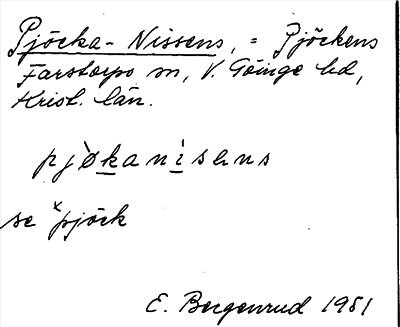 Pjöcka-Nissens, = Pjöckens
Farstorps sn, V. Göinge hd,
Krist. län.
pjø̀kanìsəns
se ˣpjöck
E. Bergenrud 1981